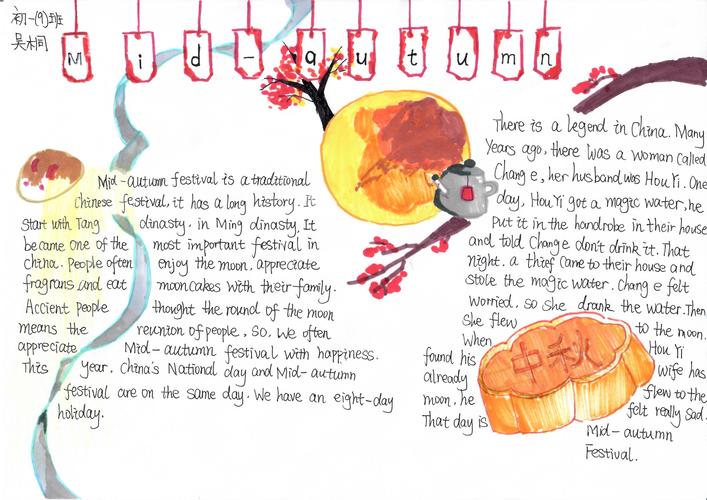 初一(9)班
吴桐
Mid-autumn
Mid-autumn festival is a traditional
Chinese festival, it has a long history. It
start with Tang dinasty, in Ming dinasty, It
became one of the most important festival in
China. People often enjoy the moon, appreciate
fragrans and eat mooncakes with their family.
Accient people thought the round of the moon
means the reunion of people. So, We often
appreciate Mid-autumn festival with happiness.
This year, China's National day and Mid-autumn
festival are on the same day. We have an eight-day
holiday.
There is a legend in China. Many
Years ago, there was a woman called
Chang e, her husband was Hou Yi. One
day, Hou Yi got a magic water, he
Put it in the handrobe in their house
and told Change don't drink it. That
night, a thief cane to their house and
stole the magic water. Chang e felt
worried, so she drank the water. Then
she flew to the moon.
When Hou Yi
found his wife has
already flew to the
moon, he felt really sad.
That day is Mid-autumn
Festival.
中秋